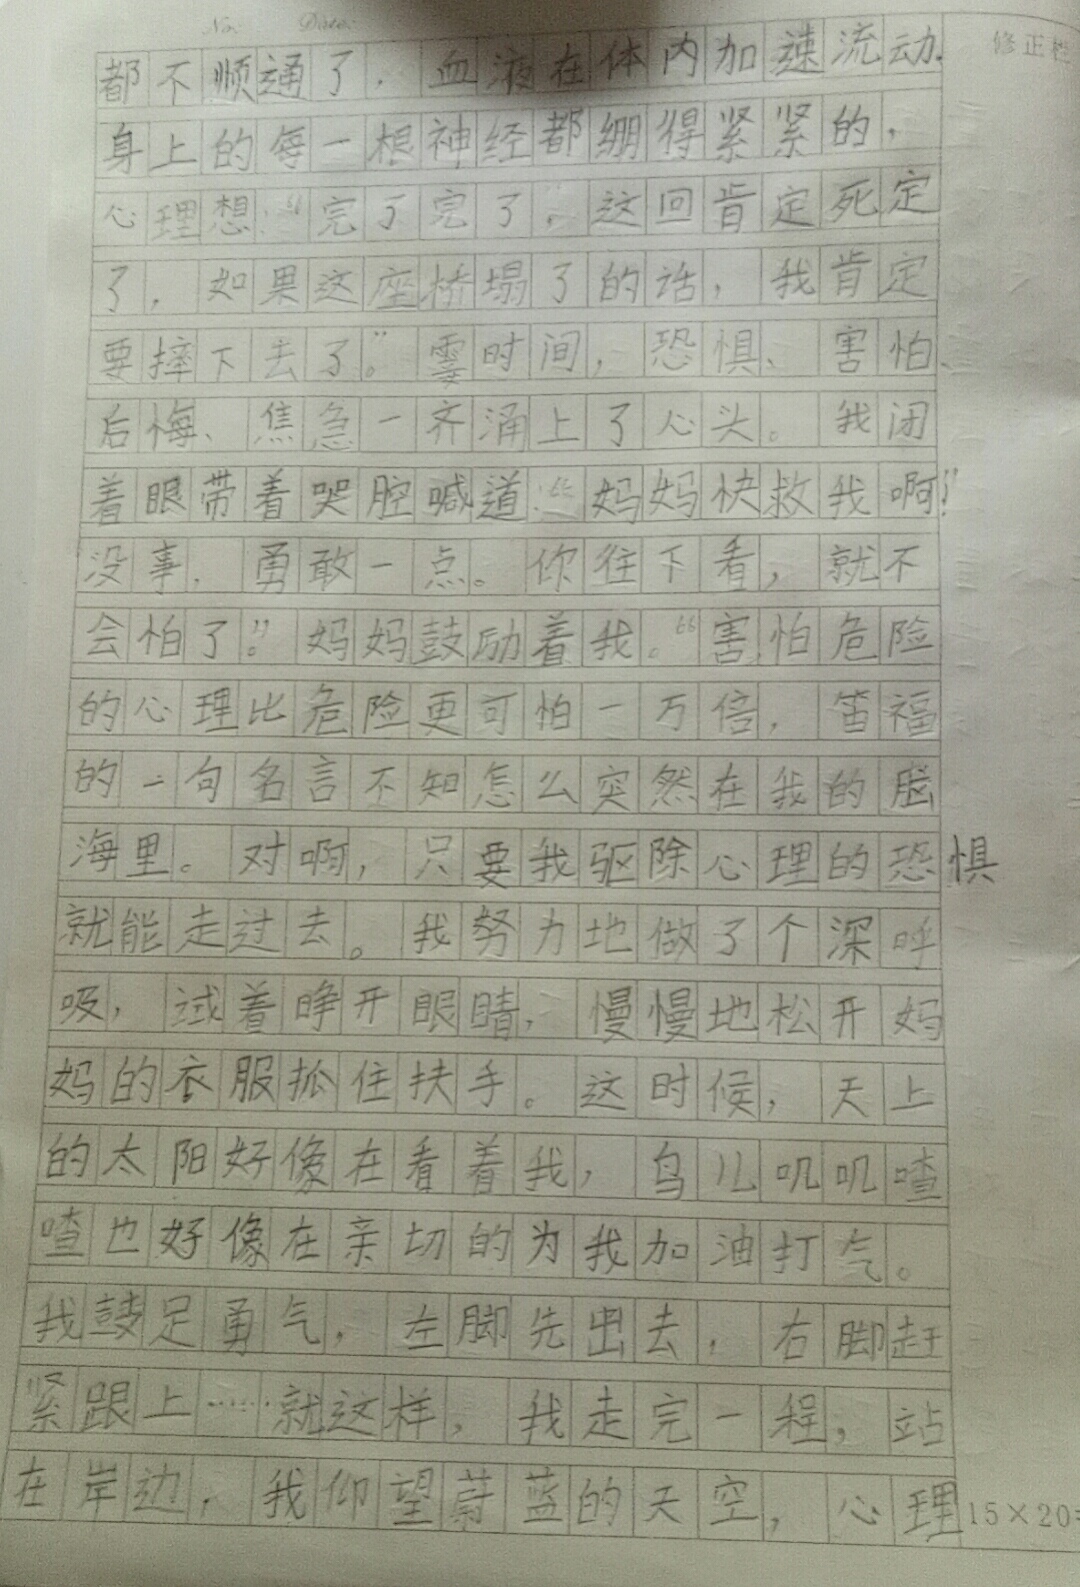 No. Date.
修正栏
都不顺通了，血液在体内加速流动.
身上的每一根神经都绷得紧紧的，
心理想:“完了完了，这回肯定死定
了，如果这座桥塌了的话，我肯定
要摔下去了。”霎时间，恐惧、害怕、
后悔、焦急一齐涌上了心头。我闭
着眼带着哭腔喊道:“妈妈快救我啊!”
没事，勇敢一点。你往下看，就不
会怕了。”妈妈鼓励着我。“害怕危险
的心理比危险更可怕一万倍，笛福
的一句名言不知怎么突然在我的脑
海里。对啊，只要我驱除心理的恐惧
就能走过去。我努力地做了个深呼
吸，试着睁开眼睛，慢慢地松开妈
妈的衣服抓住扶手。这时候，天上
的太阳好像在看着我，鸟儿叽叽喳
喳也好像在亲切的为我加油打气。
我鼓足勇气，左脚先出去，右脚赶
紧跟上……就这样，我走完一程，站
在岸边，我仰望蔚蓝的天空，心理
15×20=